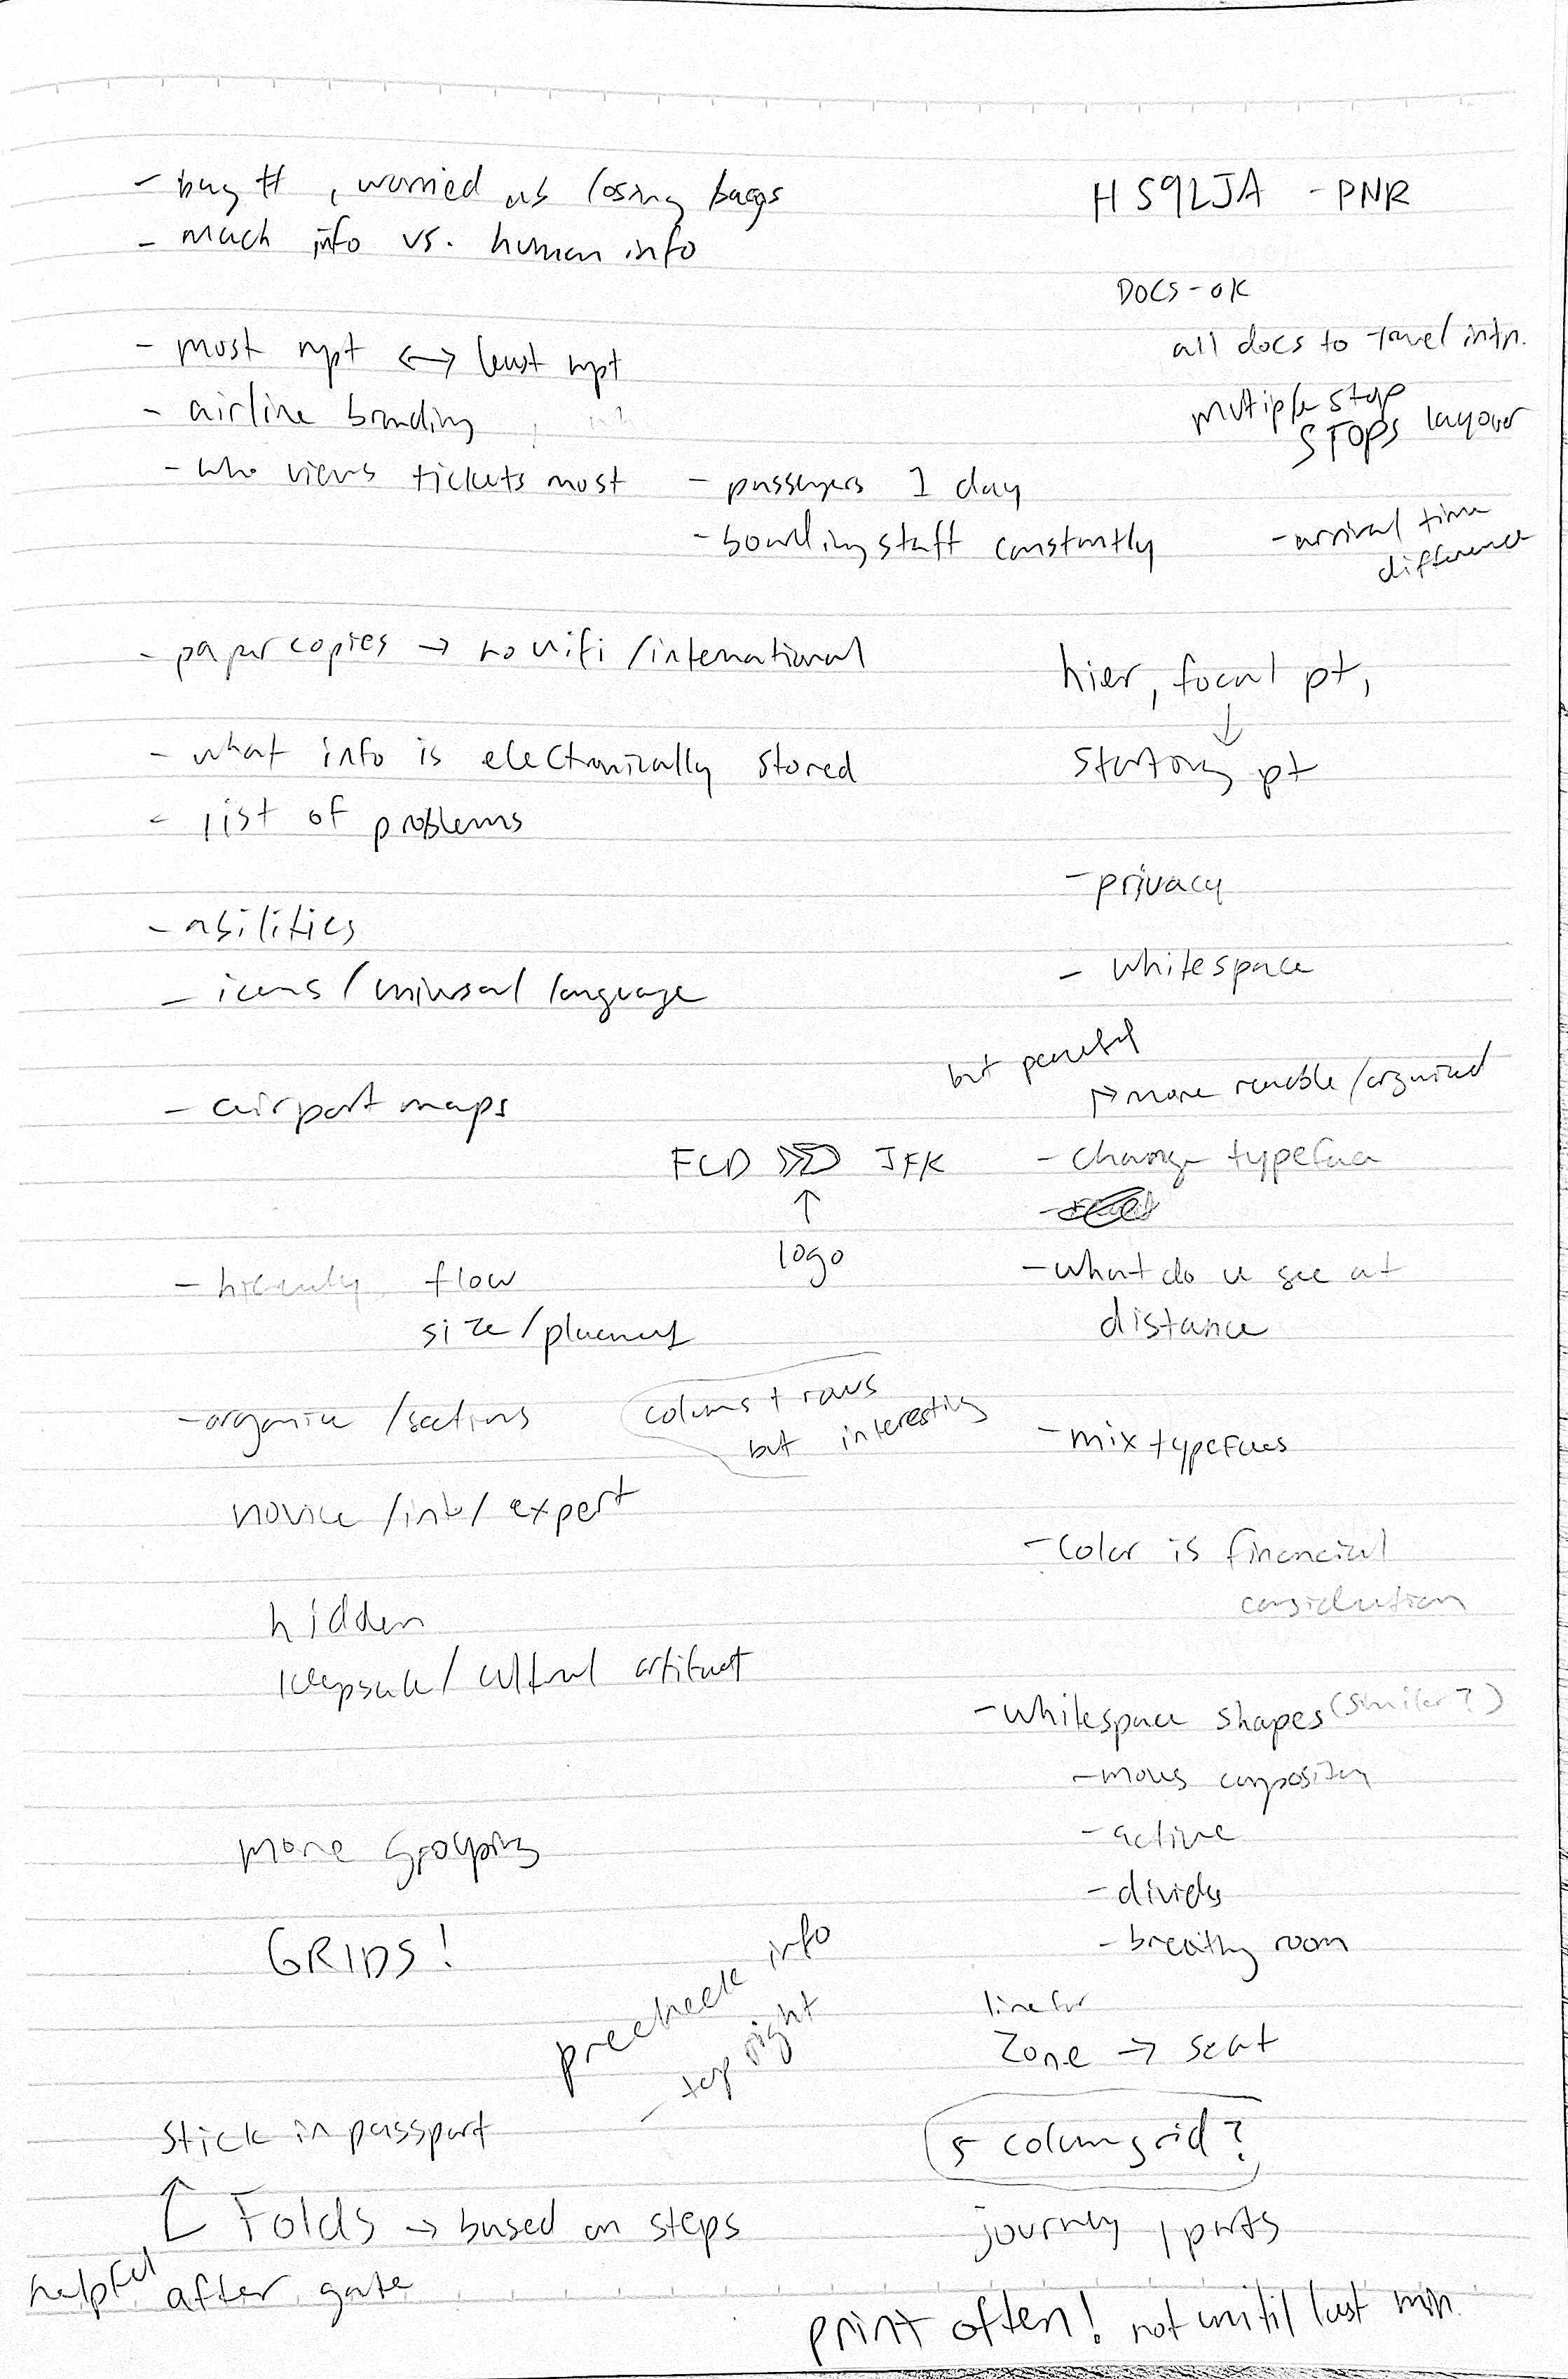 - bag # , worried ab losing bags
- mach info vs. human info
- most impt ↔ least impt
- airline branding
- who views tickets most
- passengers 1 day
- boarding staff constantly
- paper copies → no wifi / international
- what info is electronically stored
- list of problems
- abilities
- icons / universal language
- airport maps
FCD JFK
↑
logo
- hierarchy, flow
size / placement
- organize / sections
columns + rows
but interesting
novice / int / expert
hidden
keepsake / cultural artifact
more grouping
GRIDS!
precheck info
- top right
stick in passport
Folds → based on steps
helpful after gate
HS9LJA - PNR
DOCS - OK
all docs to travel intn.
multiple stop
STOPS layover
- arrival time
difference
hier, focal pt,
↓
starting pt
- privacy
- whitespace
but peaceful
→ more readable / organized
- change typeface
- what do u see at
distance
- mix typefaces
- color is financial
consideration
- whitespace shapes (similar?)
- moves composition
- active
- divides
- breathing room
line for
Zone → seat
5 column grid?
journey / parts
print often! not until last min.